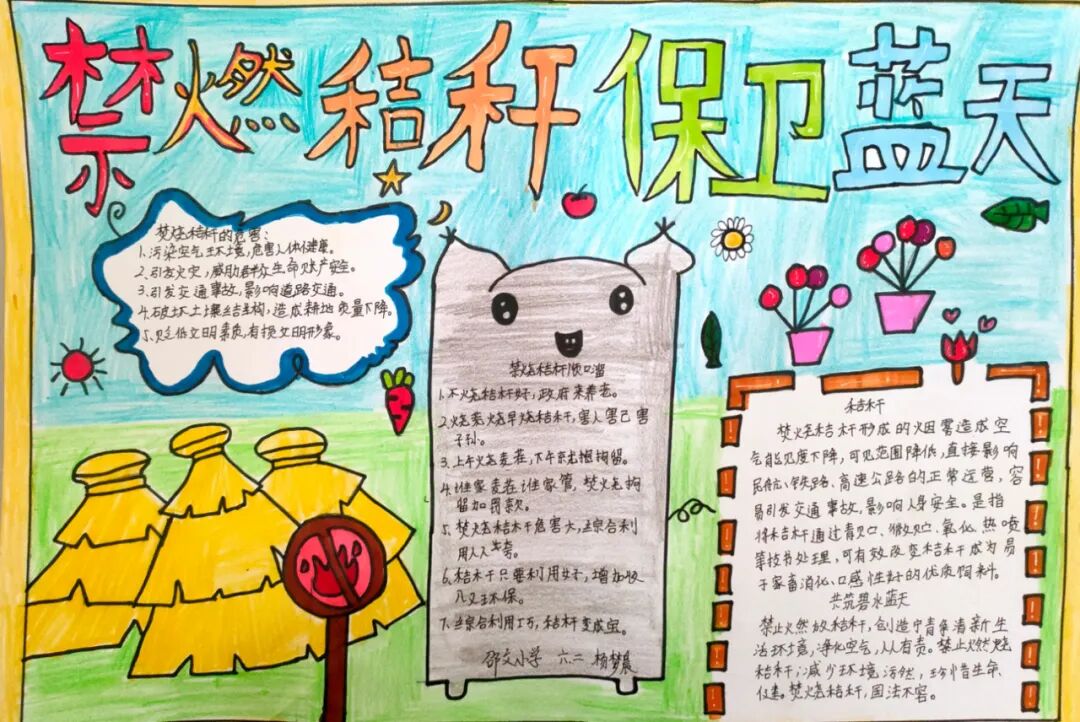 禁燃秸秆保卫蓝天
焚烧秸秆的危害：
1、污染空气环境，危害人体健康。
2、引发火灾，威胁群众生命财产安全。
3、引发交通事故，影响道路交通。
4、破坏土壤结构，造成耕地质量下降。
5、贬低文明素质，有损文明形象。
禁烧秸秆顺口溜
1、不烧秸秆好，政府来养老。
2、烧麦烧早烧秸秆，害人害己害
子孙。
3、上午烧麦茬，下午就拘留。
4、谁家麦茬谁家管，焚烧拘
留加罚款。
5、焚烧秸秆危害大，综合利
用人人夸。
6、秸秆只要利用好，增加收
入又环保。
7、综合利用巧，秸秆变成宝。
邵文小学 六、二 杨梦晨
秸秆
焚烧秸秆形成的烟雾造成空
气能见度下降，可见范围降低，直接影响
民航、铁路、高速公路的正常运营，容
易引发交通事故，影响人身安全。是指
将秸秆通过青贮、微贮、氨化、热喷
等技书处理，可有效改变秸秆成为易
于家畜消化、口感性好的优质饲料。
共筑碧水蓝天
禁止燃放秸秆，创造宁静清新生
活环境，净化空气，人人有责。禁止燃烧
秸秆；减少环境污染，珍惜生命
健康。焚烧秸秆，国法不容。